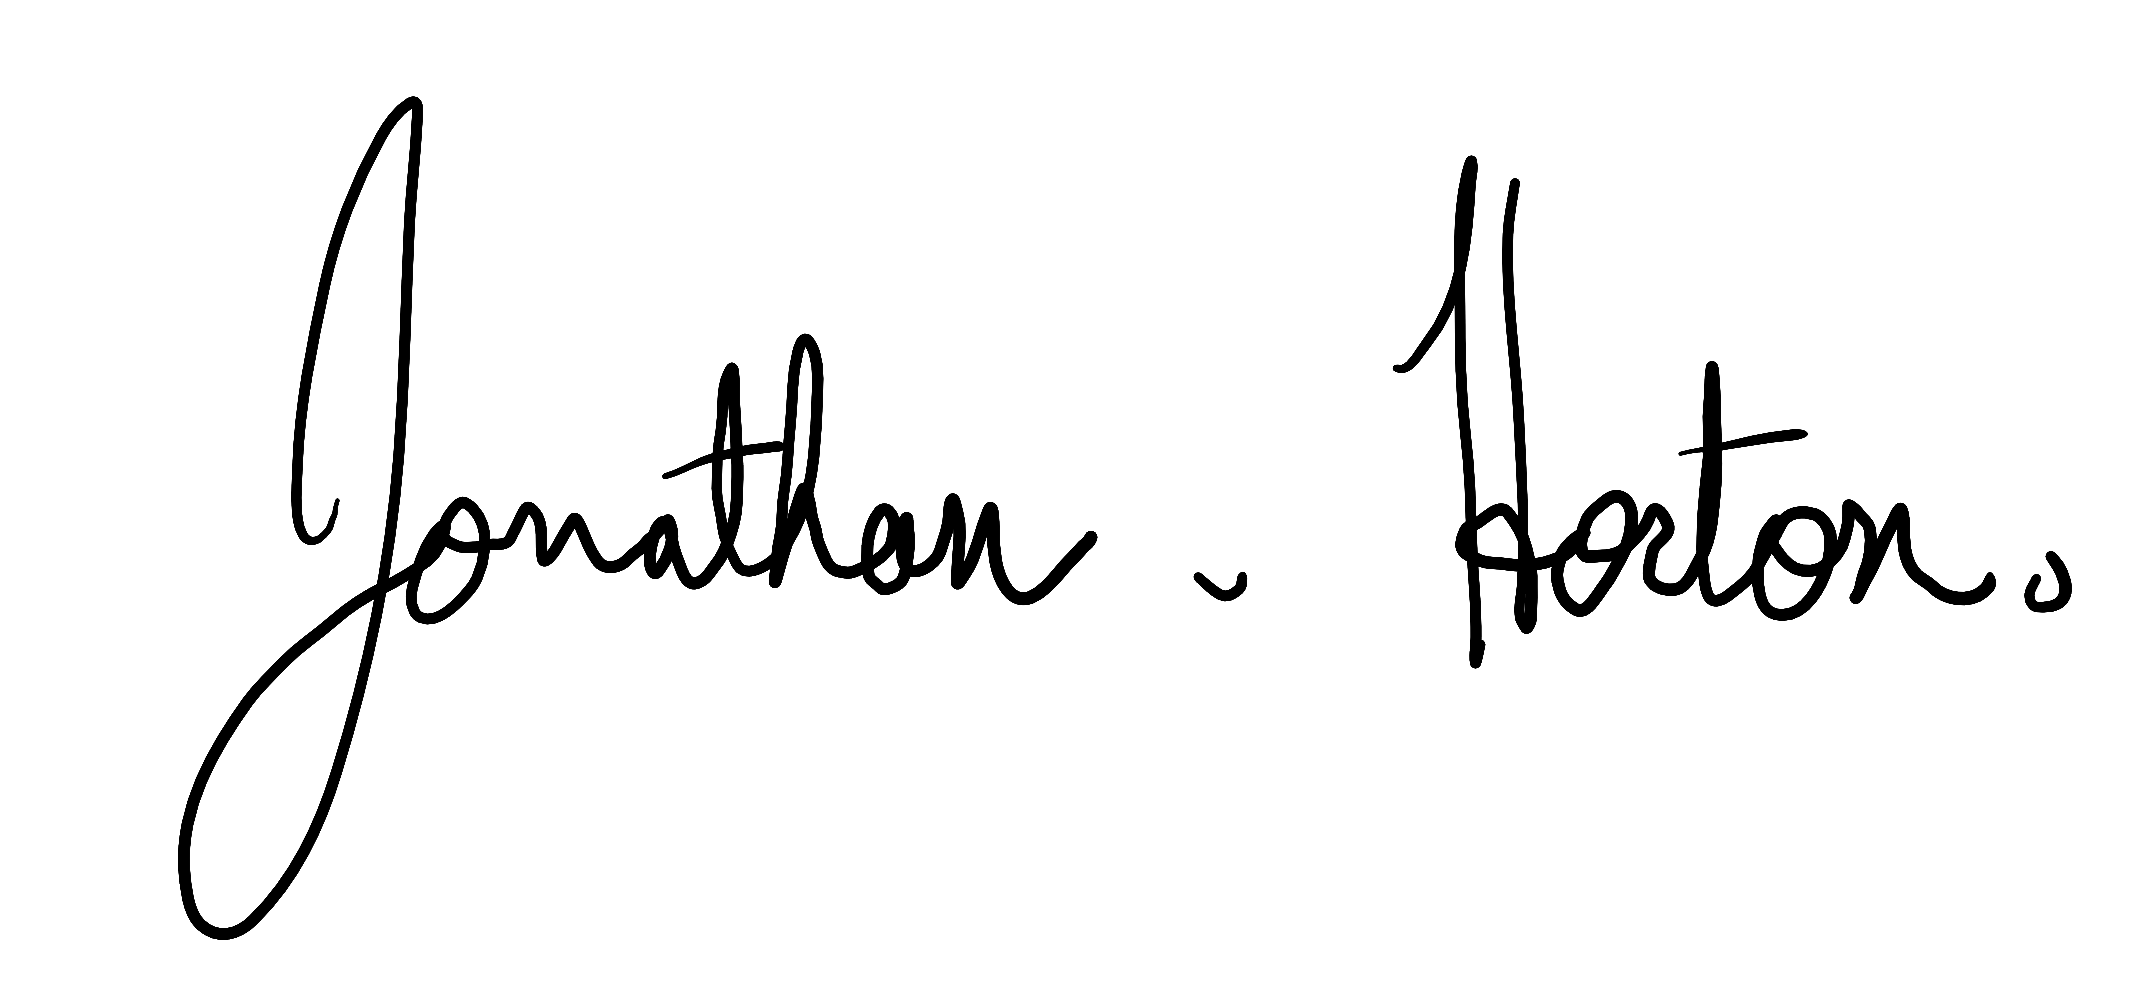 Jonathan . Horton.